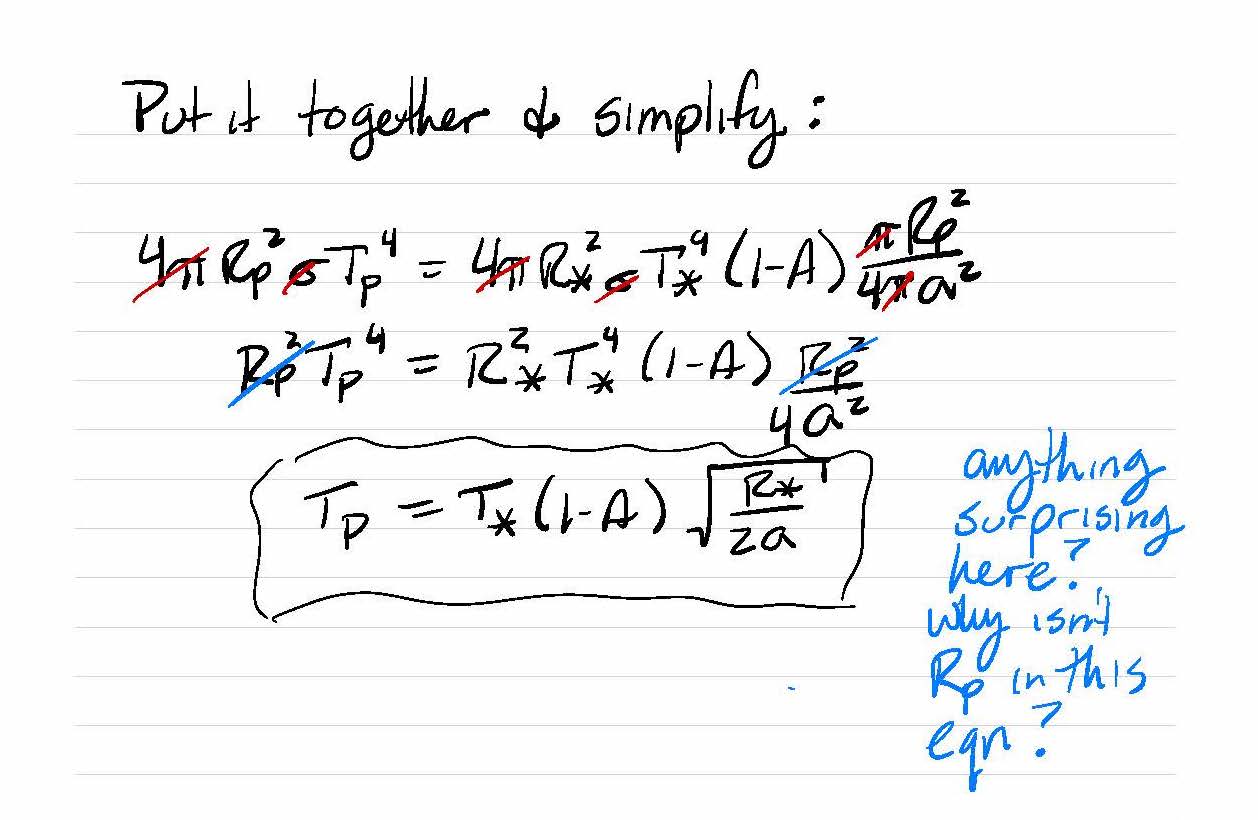 Put it together & simplify:
4π Rp² σ Tp⁴ = 4π R*² σ T*⁴ (1-A) πRp²/4πa²
Rp² Tp⁴ = R*² T*⁴ (1-A) Rp²/4a²
Tp = T* (1-A) √(R*/2a)
anything
surprising
here?
why isn't
Rp in this
eqn?